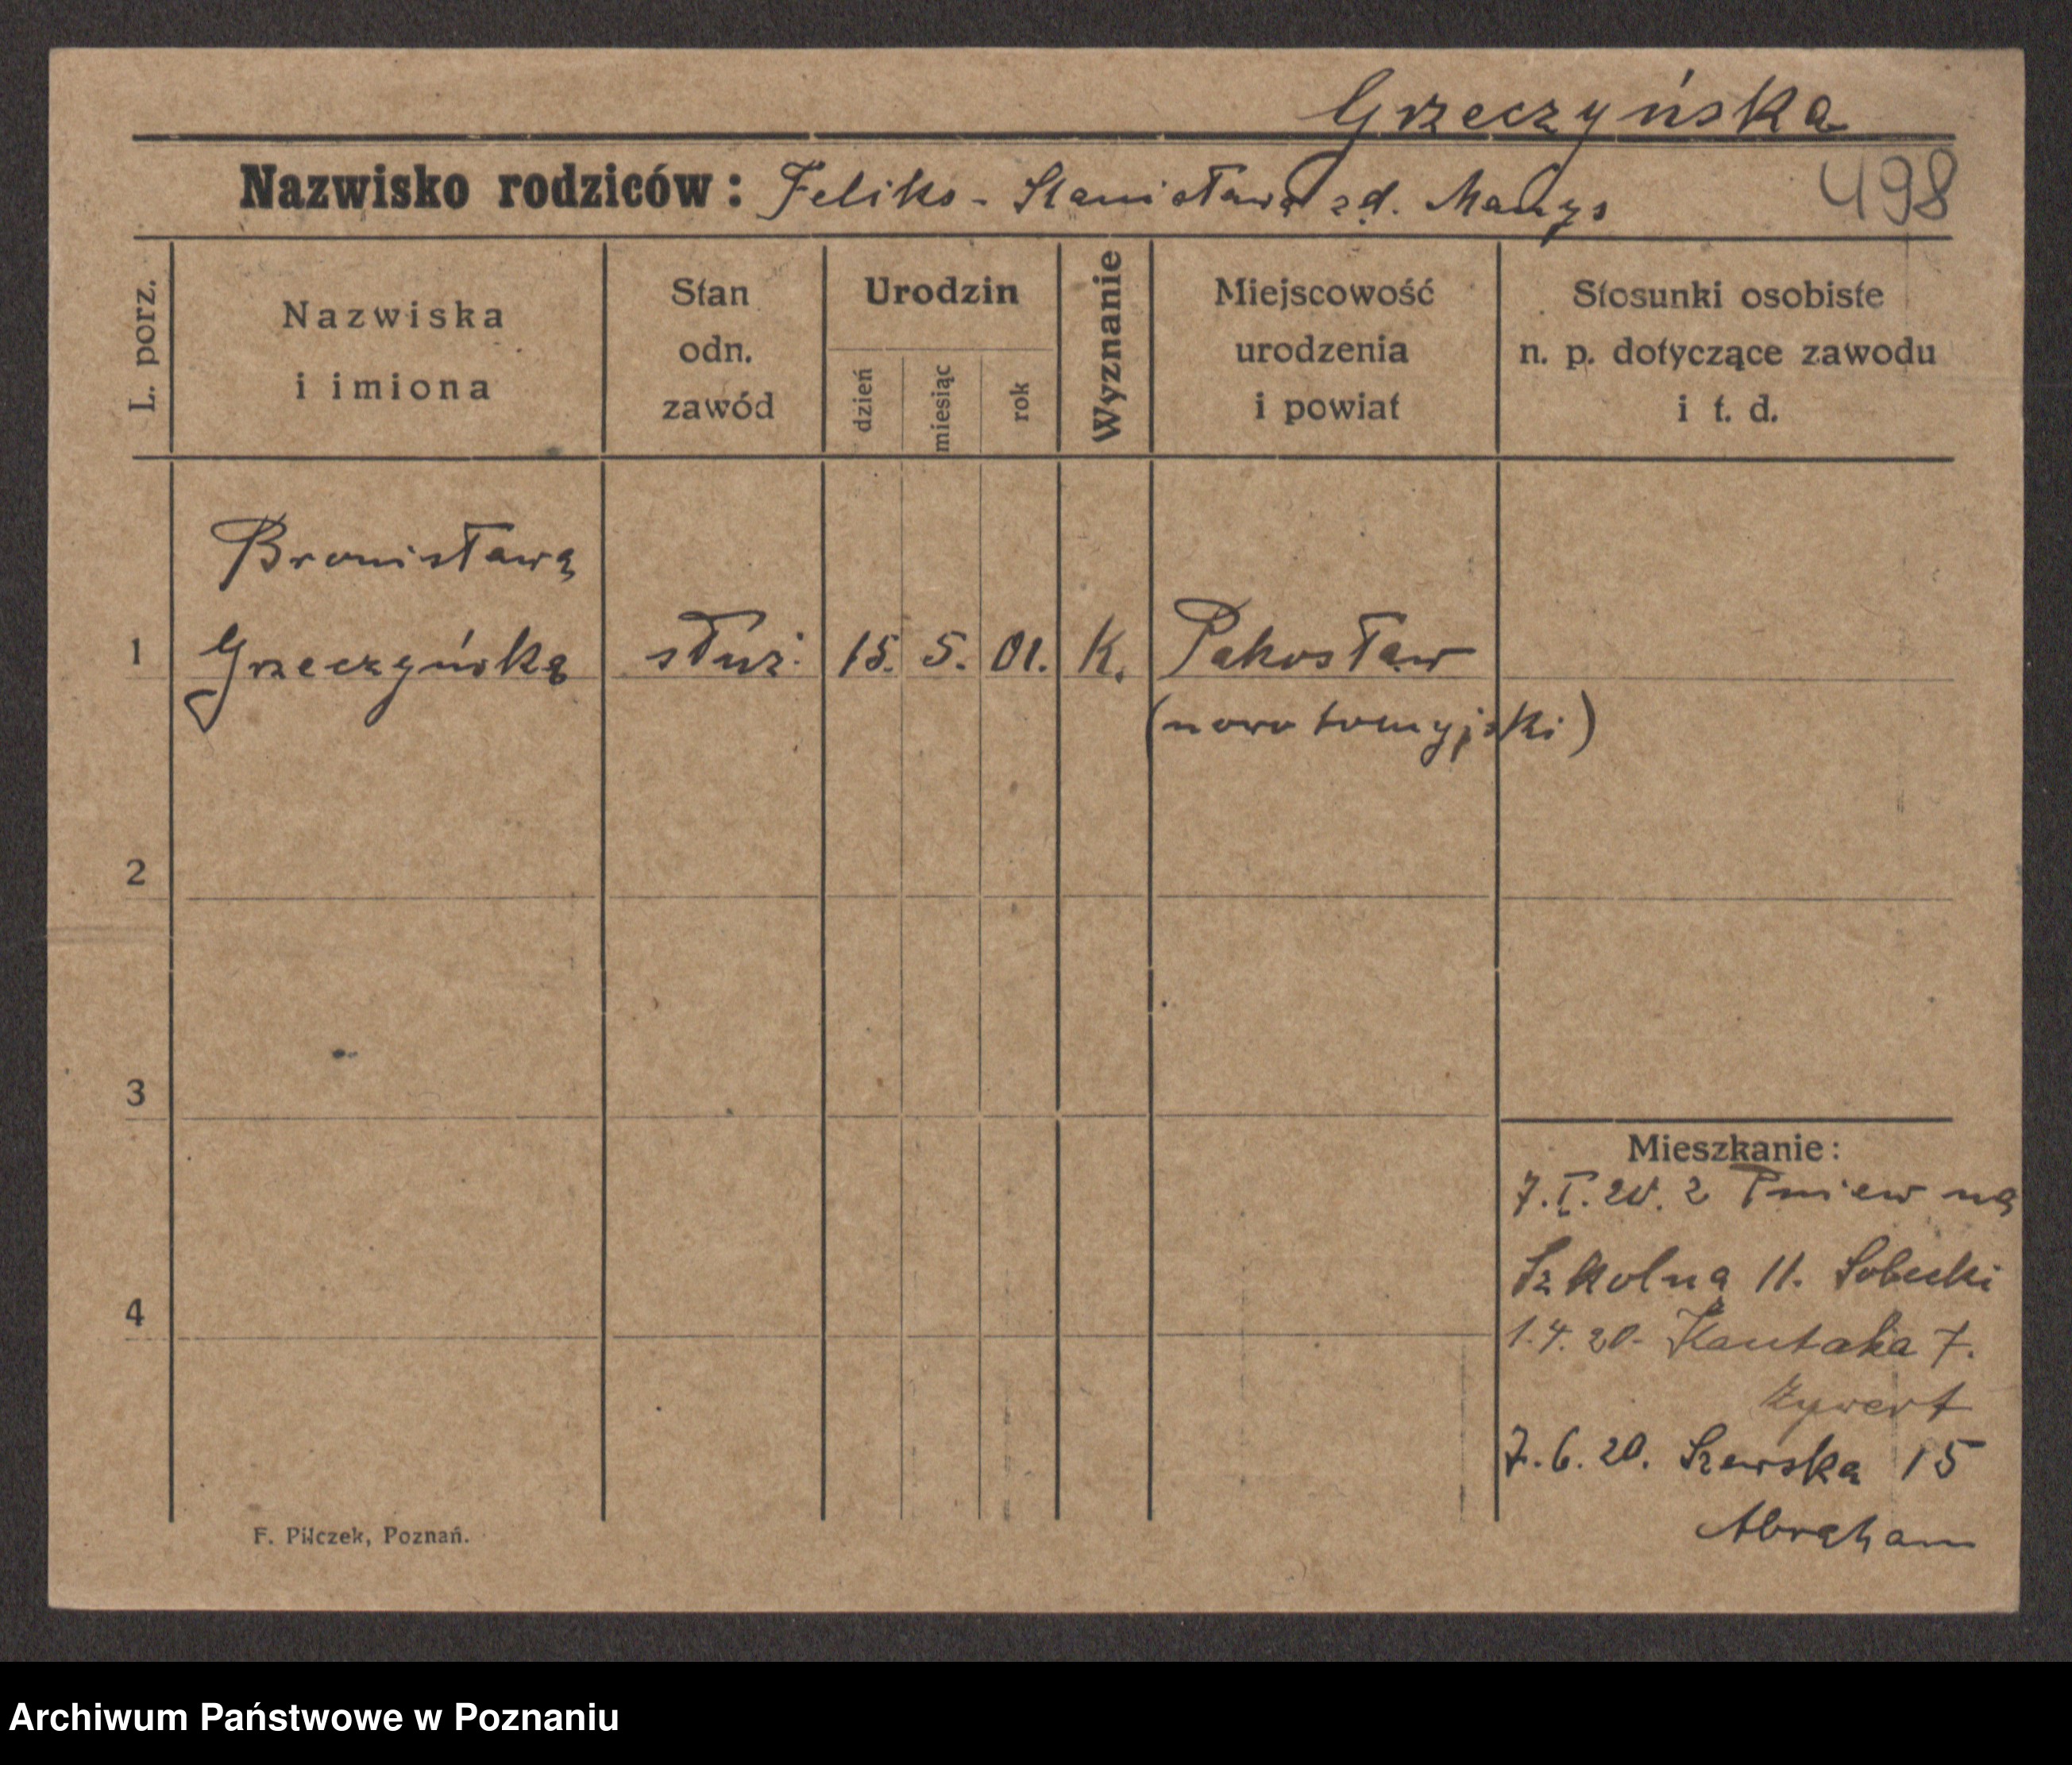 Grzeczyńska
Nazwisko rodziców: Feliks - Stanisława zd. Manys
498
L. porz.
Nazwiska
i imiona
Stan
odn.
zawód
Urodzin
dzień
miesiąc
rok
Wyznanie
Miejscowość
urodzenia
i powiat
Stosunki osobiste
n. p. dotyczące zawodu
i t. d.
Bronisława
1 Grzeczyńska służ. 15. 5. 01. K. Pakosław
(nowotomyjski)
2
3
4
Mieszkanie:
7.I.20. z Pniew na
Szkolna 11. Sobecki
1.4.20. Kantaka 7.
Zywert
7.6.20. Szewska 15
Abraham
F. Pilczek, Poznań.
Archiwum Państwowe w Poznaniu